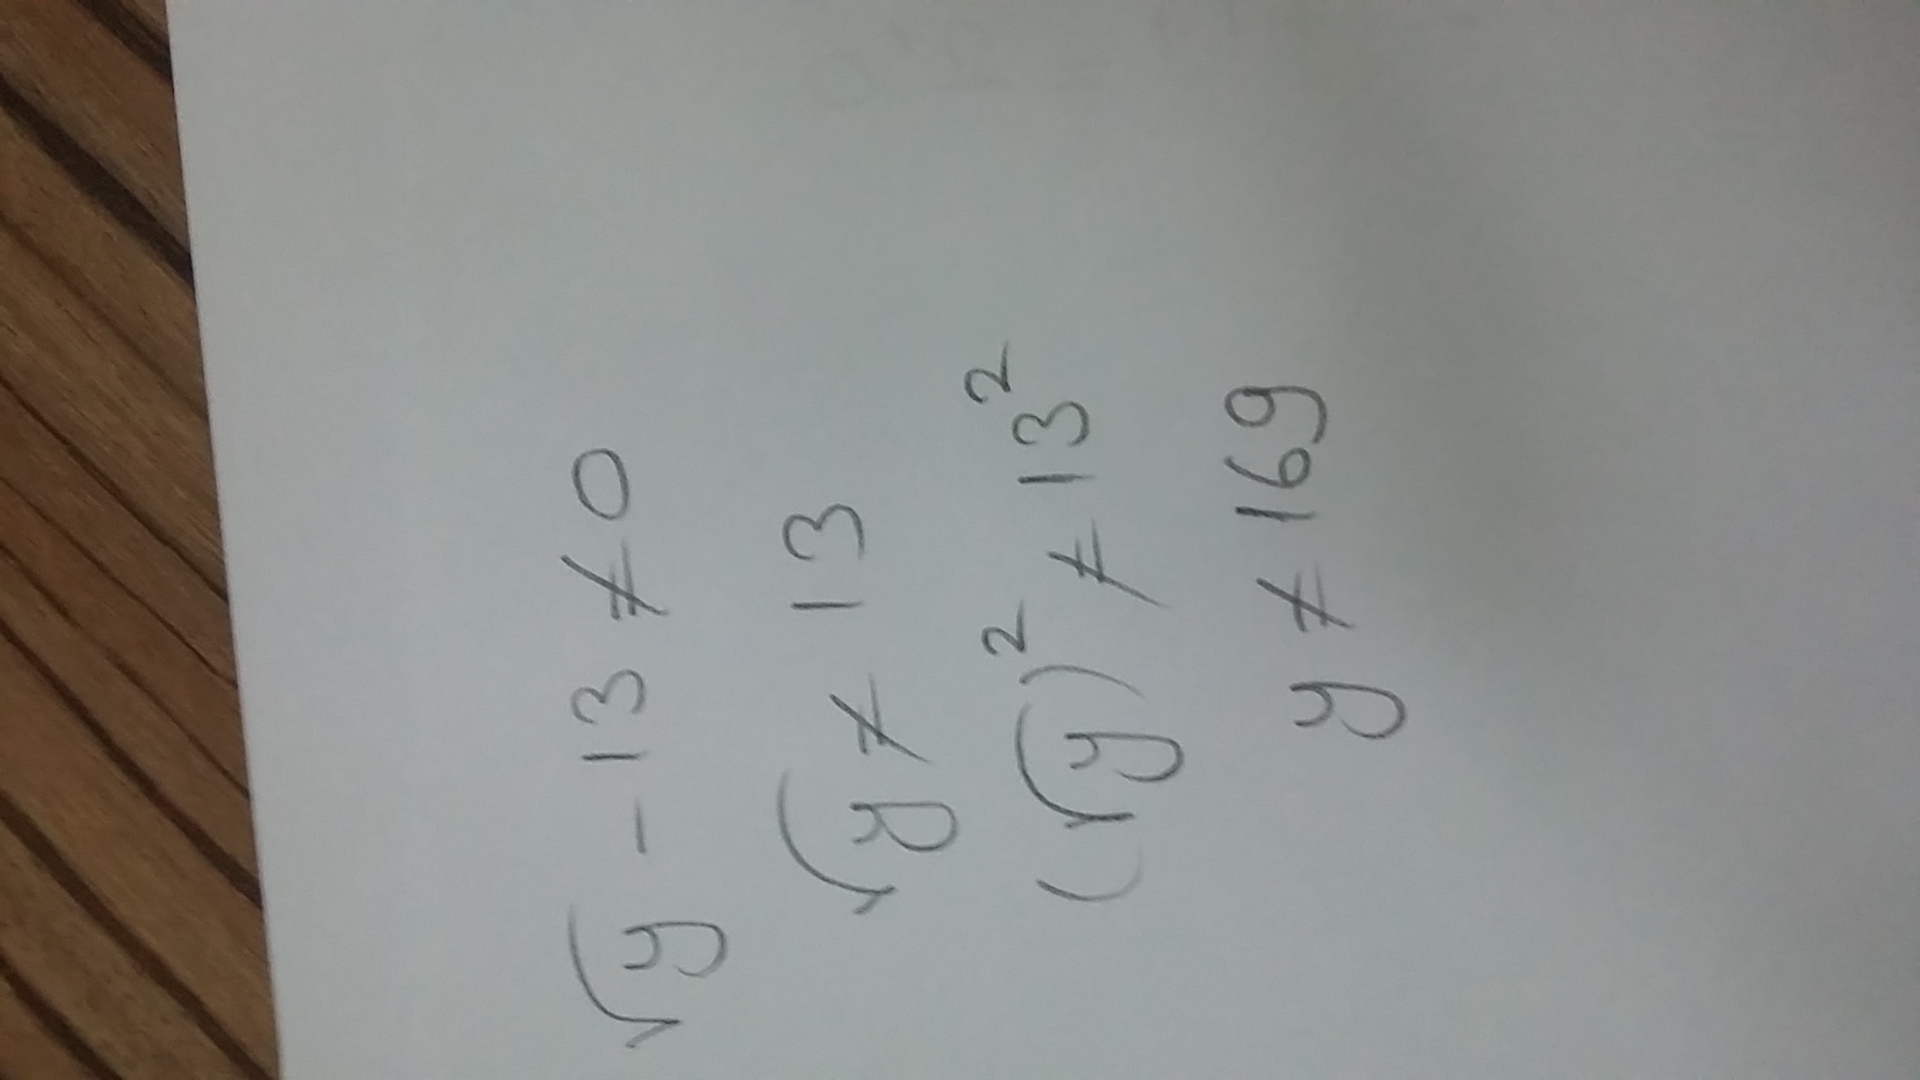 √y - 13 ≠ 0
√y ≠ 13
(√y)² ≠ 13²
y ≠ 169